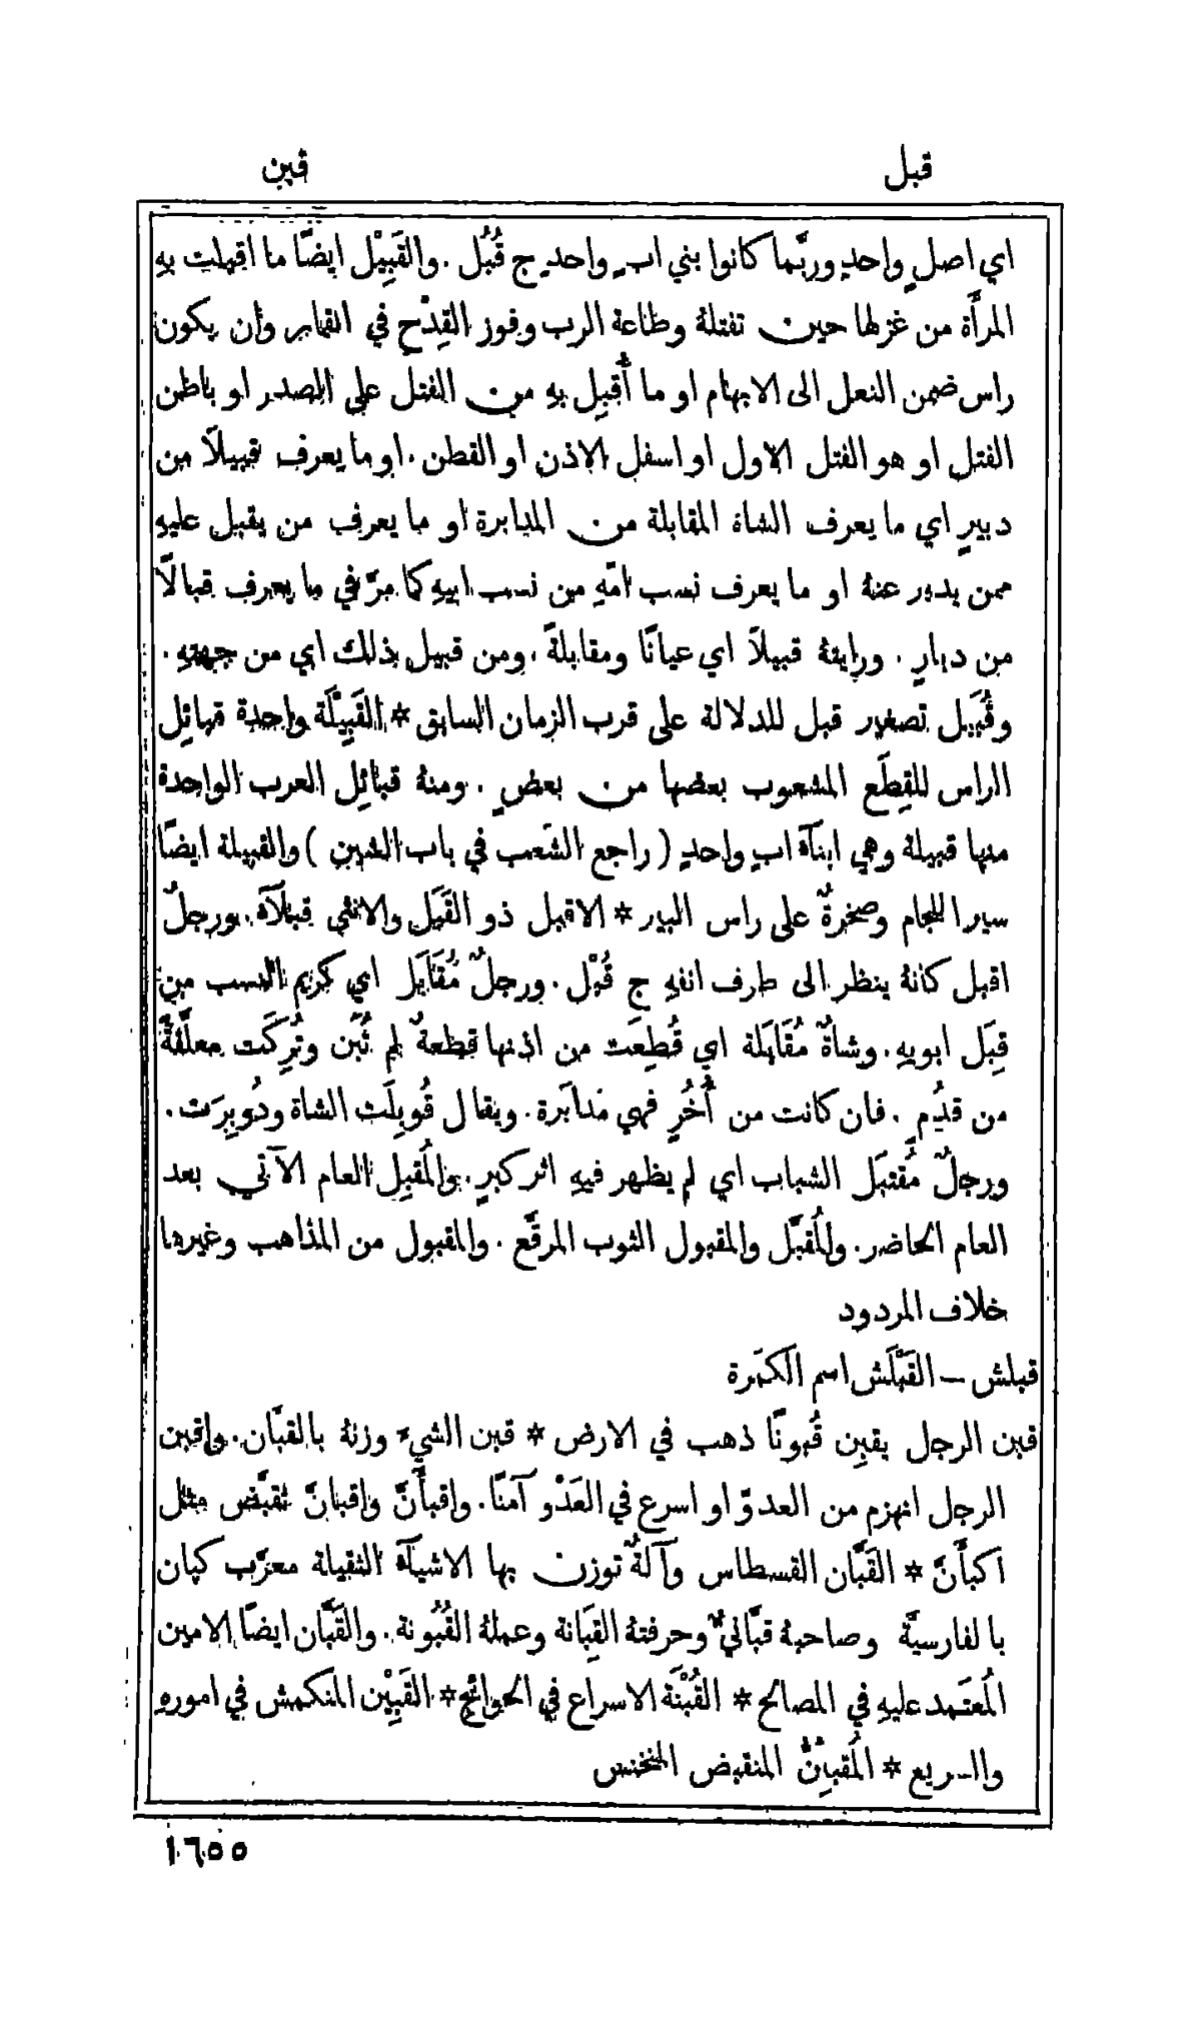 قبل
قبن
اي اصلٍ واحدٍ وربَّما كانوا بني ابٍ واحدٍ ج قُبُل . والقَبِيْل ايضًا ما اقبلت بهِ
المرأَة من غزلها حين تفتلهُ وطاعة الرب وفوز القِدْح في القمار وان يكون
راس ضمن النعل الى الابهام او ما أُقبِل بهِ من الفتل على الصدر او باطن
الفتل او هو الفتل الاول او اسفل الاذن او القطن . او ما يعرف قبيلًا من
دبيرٍ اي ما يعرف الشاة المقابلة من المدابرة او ما يعرف من يقبل عليهِ
ممن يدبر عنهُ او ما يعرف نسب امّهِ من نسب ابيهِ كما مرَّ في ما يعرف قبالًا
من دبارٍ . ورايتهُ قبيلًا اي عيانًا ومقابلةً . ومن قبيل ذلك اي من جهتهِ .
وقُبَيل تصغير قبل للدلالة على قرب الزمان السابق * القَبِيْلَة واحدة قبائِل
الراس للقِطَع المشعوب بعضها من بعضٍ . ومنهُ قبائِل العرب الواحدة
منها قبيلة وهي ابنآءُ ابٍ واحدٍ ( راجع الشَعب في باب الشين ) والقبيلة ايضًا
سير اللجام وصخرةٌ على راس البير * الاقبل ذو القَبَل والانثى قبلآءُ . ورجلٌ
اقبل كانهُ ينظر الى طرف انفهِ ج قُبْل . ورجلٌ مُقَابَل اي كريم النسب من
قِبَل ابويهِ . وشاةٌ مُقَابَلة اي قُطِعَت من اذنها قطعةٌ لم تُبَن وتُرِكَت معلَّقةً
من قدُمٍ . فان كانت من أُخُرٍ فهي مدابَرة . ويقال قُوبِلَت الشاة ودُوبِرَت .
ورجلٌ مُقتبَل الشباب اي لم يظهر فيهِ اثر كبرٍ . والمُقبِل العام الآتي بعد
العام الحاضر . والمُقبَّل والمقبول الثوب المرقَّع . والمقبول من المذاهب وغيرها
خلاف المردود
قبلش – القَبْلَش اسم الكَمَرة
قبن الرجل يقبِن قُبونًا ذهب في الارض * قبن الشيءَ وزنهُ بالقبَّان . واقبن
الرجل انهزم من العدوّ او اسرع في العَدْو آمنًا . واقبأَنَّ واقبانَّ تقبَّض مثل
اكبأَنَّ * القَبَّان القسطاس وآلةٌ توزن بها الاشيآءُ الثقيلة معرَّب كپان
بالفارسيَّة وصاحبهُ قبَّانيٌّ وحرفتهُ القِبَانة وعملهُ القُبُونة . والقَبَّان ايضًا الامين
المُعتَمد عليهِ في المصالح * القُبْنَة الاسراع في الحوائج * القَبِيْن المنكمش في امورهِ
والسريع * المُقبئِنُّ المنقبض المنخنس
١٦٥٥